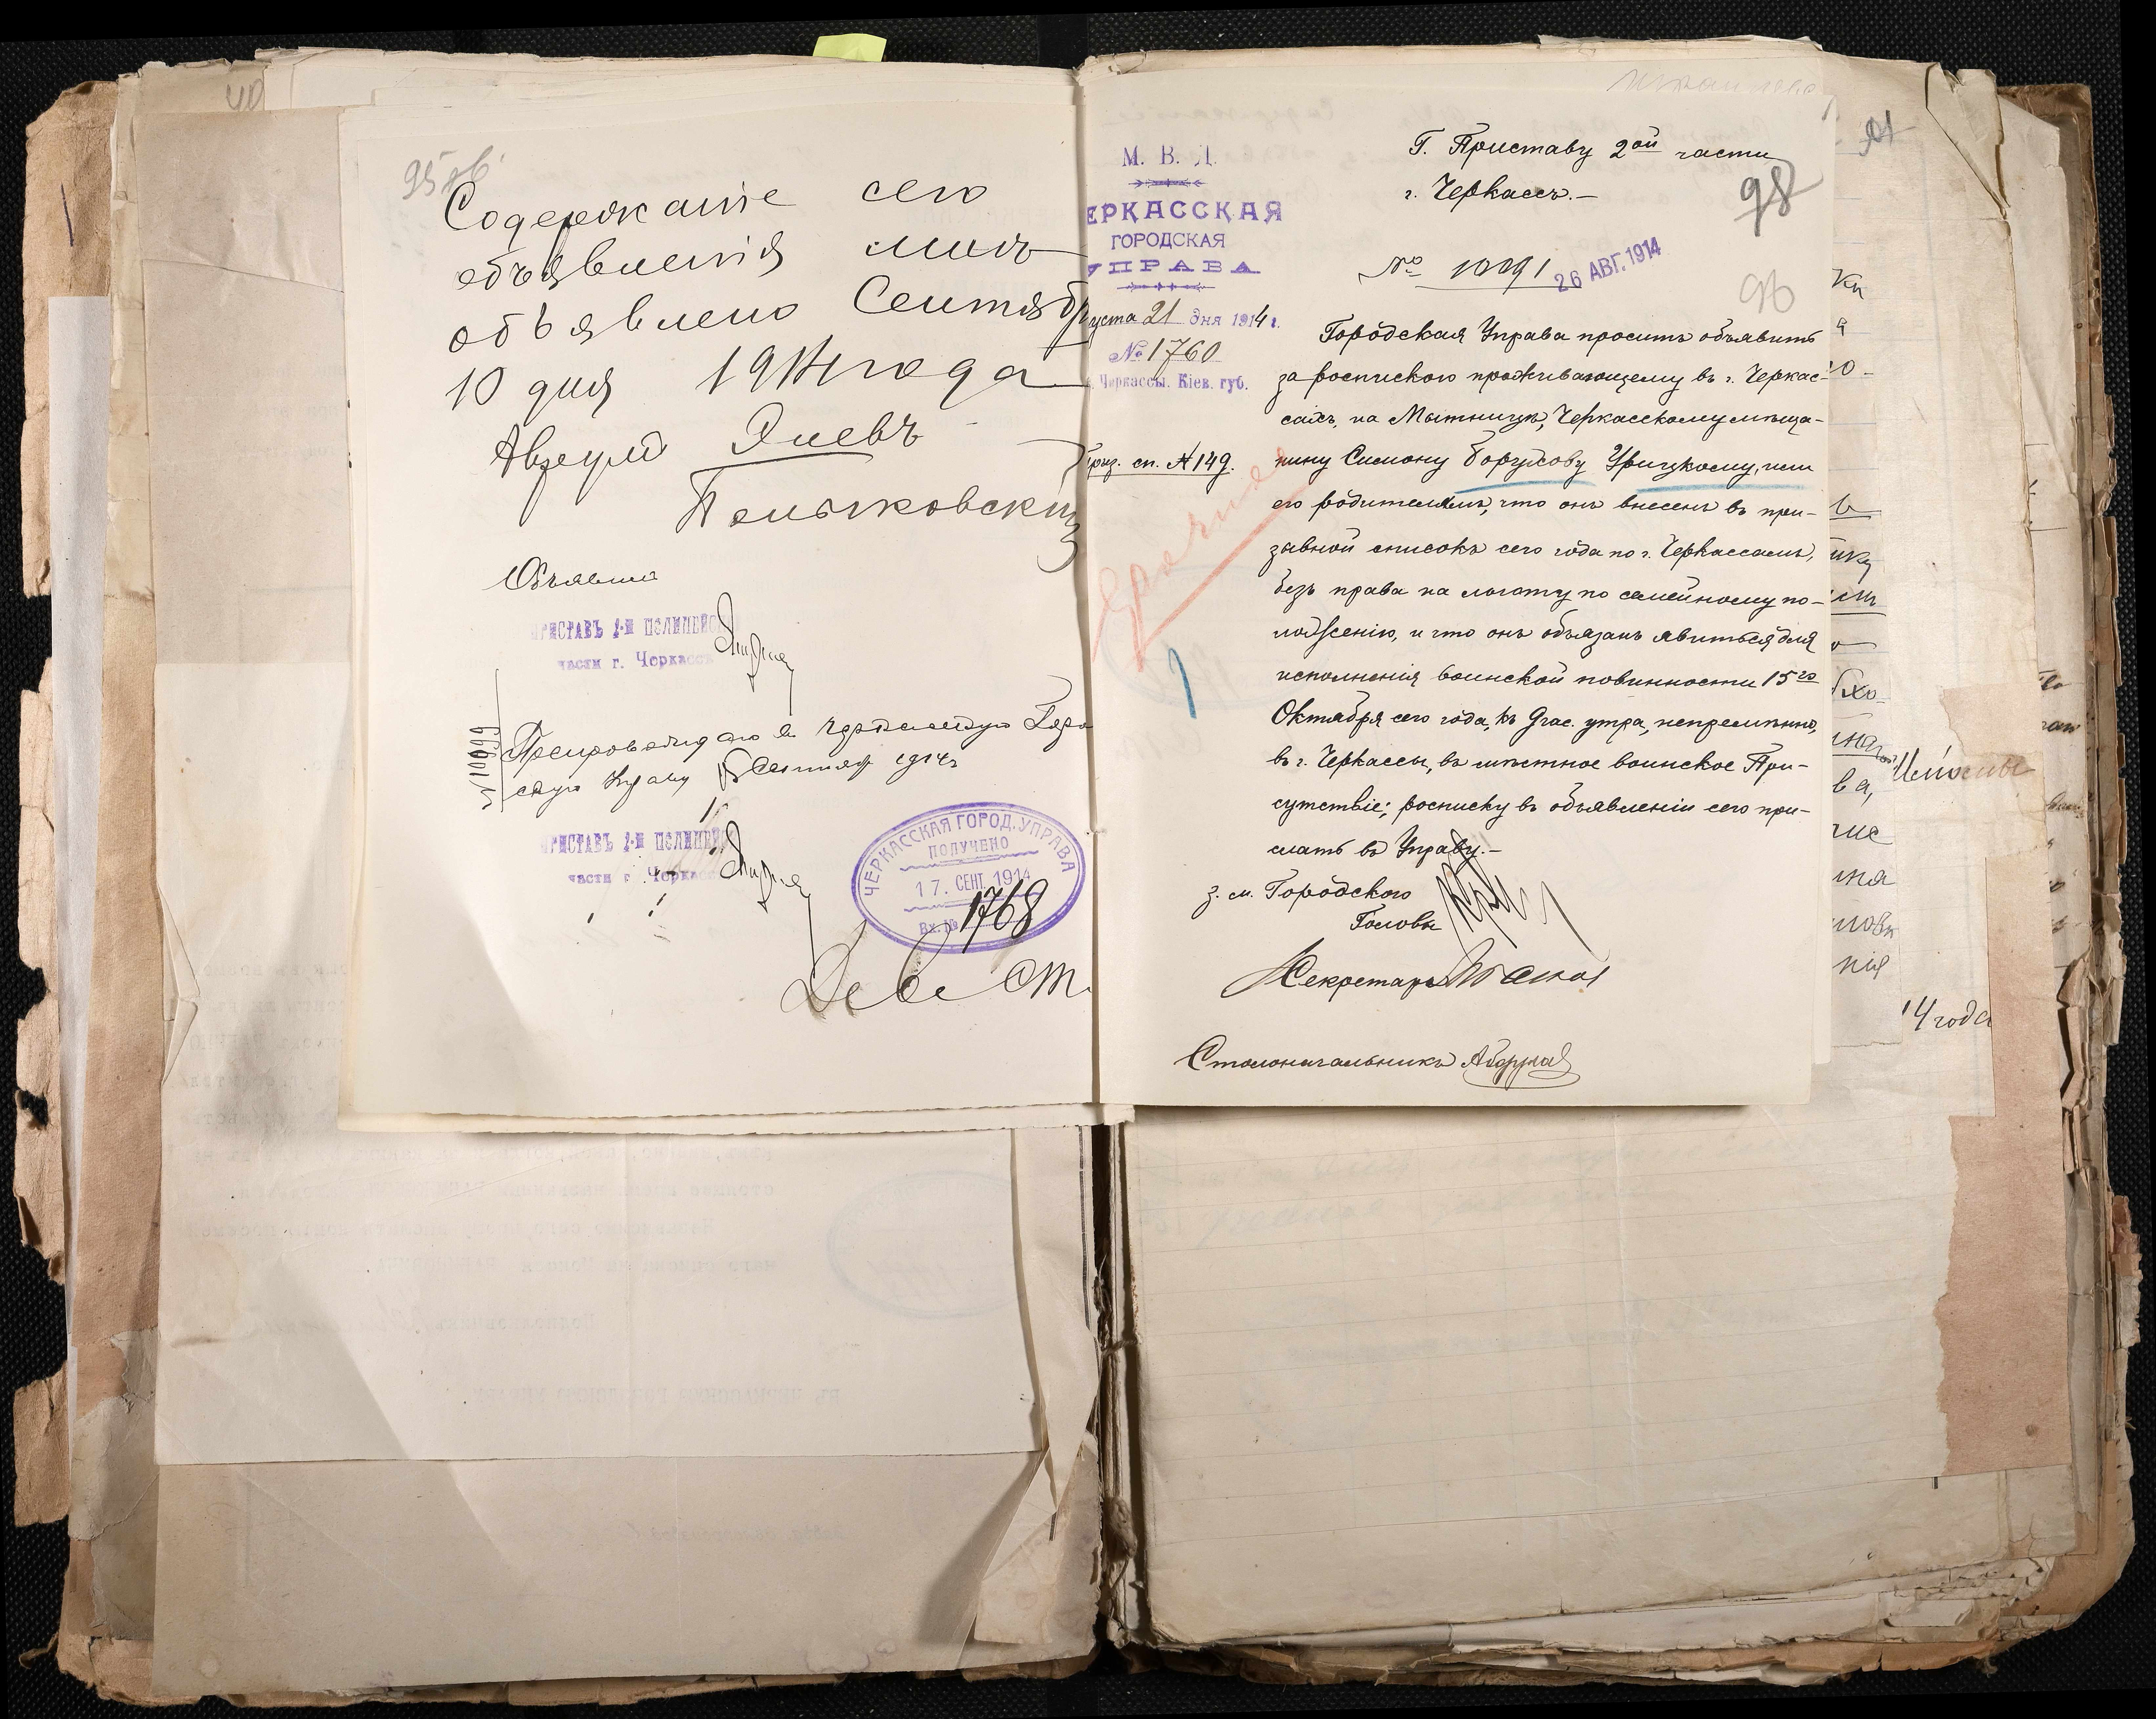 40
95об.
Содержаніе сего
объявленія мнѣ
объявлено Сентябр
10 дня 1914 года
Яневъ
Объявилъ
ПРИСТАВЪ 2-й ПОЛИЦЕЙС
части г. Черкассъ
№ 10099
Препровождаю въ Черкасскую Горо
скую Управу 15 Сентяб 1914 г
ПРИСТАВЪ 2-й ПОЛИЦЕЙ
части г. Черкассъ
ЧЕРКАССКАЯ ГОРОД. УПРАВА
ПОЛУЧЕНО
17. СЕНТ. 1914
Вх. № 1768
М. В. Д.
ЕРКАССКАЯ
ГОРОДСКАЯ
УПРАВА
густа 21 дня 1914 г.
№ 1760
г. Черкассы. Кіев. губ.
Приз. сп. № 149.
Срочная
Г. Приставу 2ой части
г. Черкассъ.—
98
№ 10091
26 АВГ. 1914
96
Городская Управа проситъ объявить
за роспискою проживающему въ г. Черкас-
сахъ, на Мытницѣ, Черкасскому мѣща-
нину Симону Боруховиу Урицкому, или
его родителямъ, что онъ внесенъ въ при-
зывной списокъ сего года по г. Черкассамъ,
безъ права на льготу по семейному по-
ложенію, и что онъ обязанъ явиться для
исполненія воинской повинности 15го
Октября сего года, къ 9 час. утра, непремѣнно,
въ г. Черкассы, въ мѣстное воинское При-
сутствіе; росписку въ объявленіи сего при-
слать въ Управу.—
з. м. Городского
Головы
Секретарь
Столоначальникъ
14 года